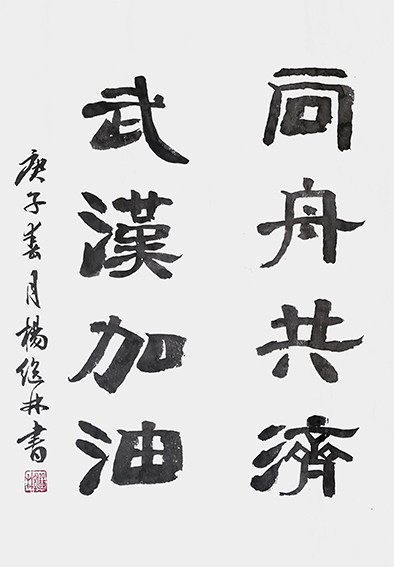 同舟共濟
武漢加油
庚子春月楊繼林書